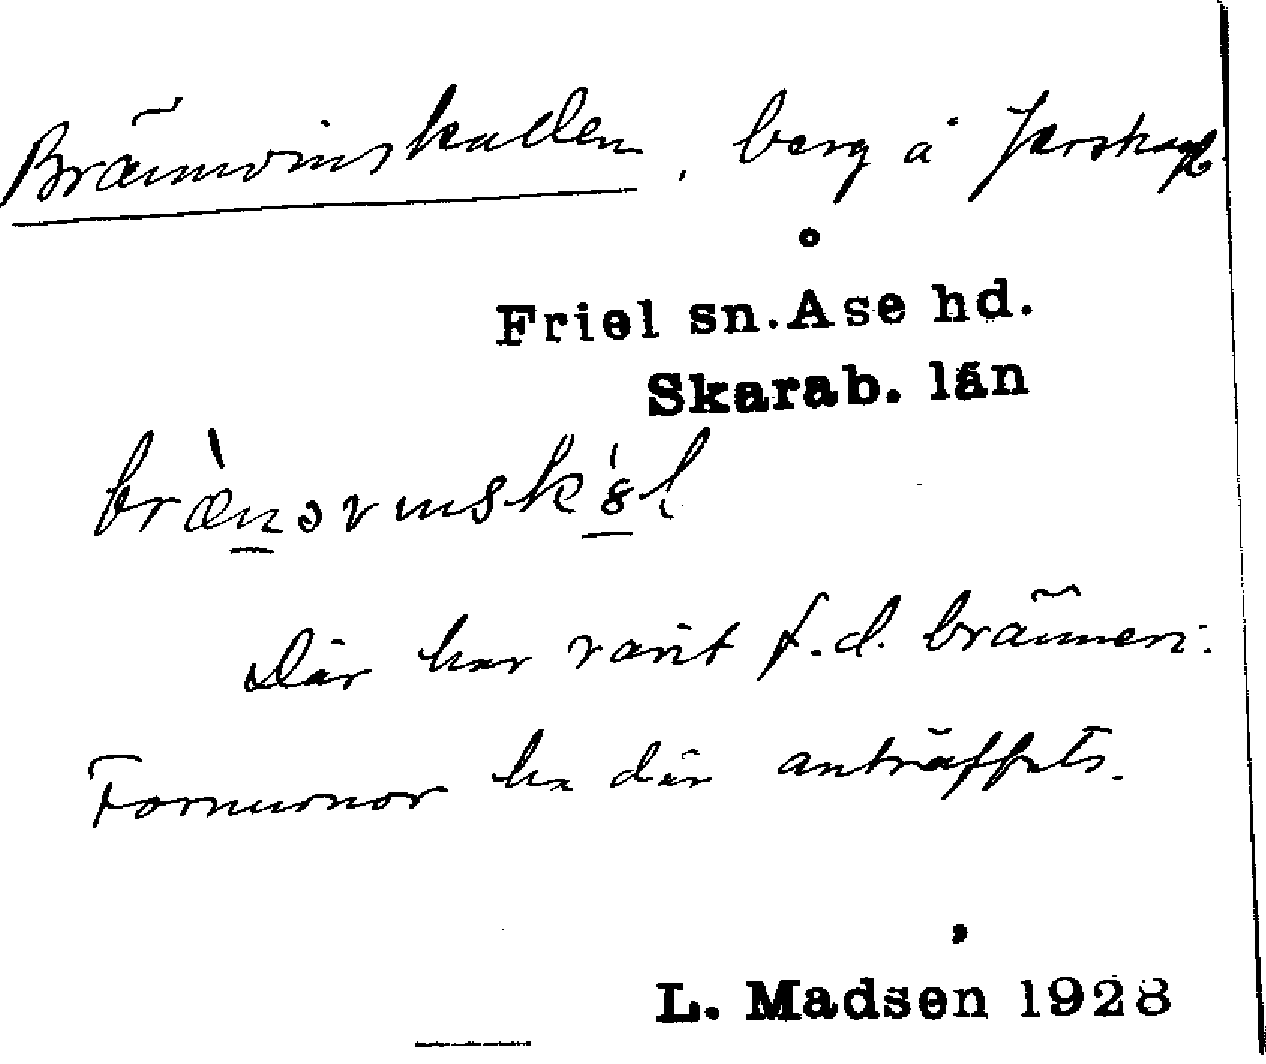 Brännvinskullen, berg å
Friel sn. Åse hd.
Skarab. län
Där har varit f.d. bränneri.
Fornminor ha där anträffats.
L. Madsen 1928